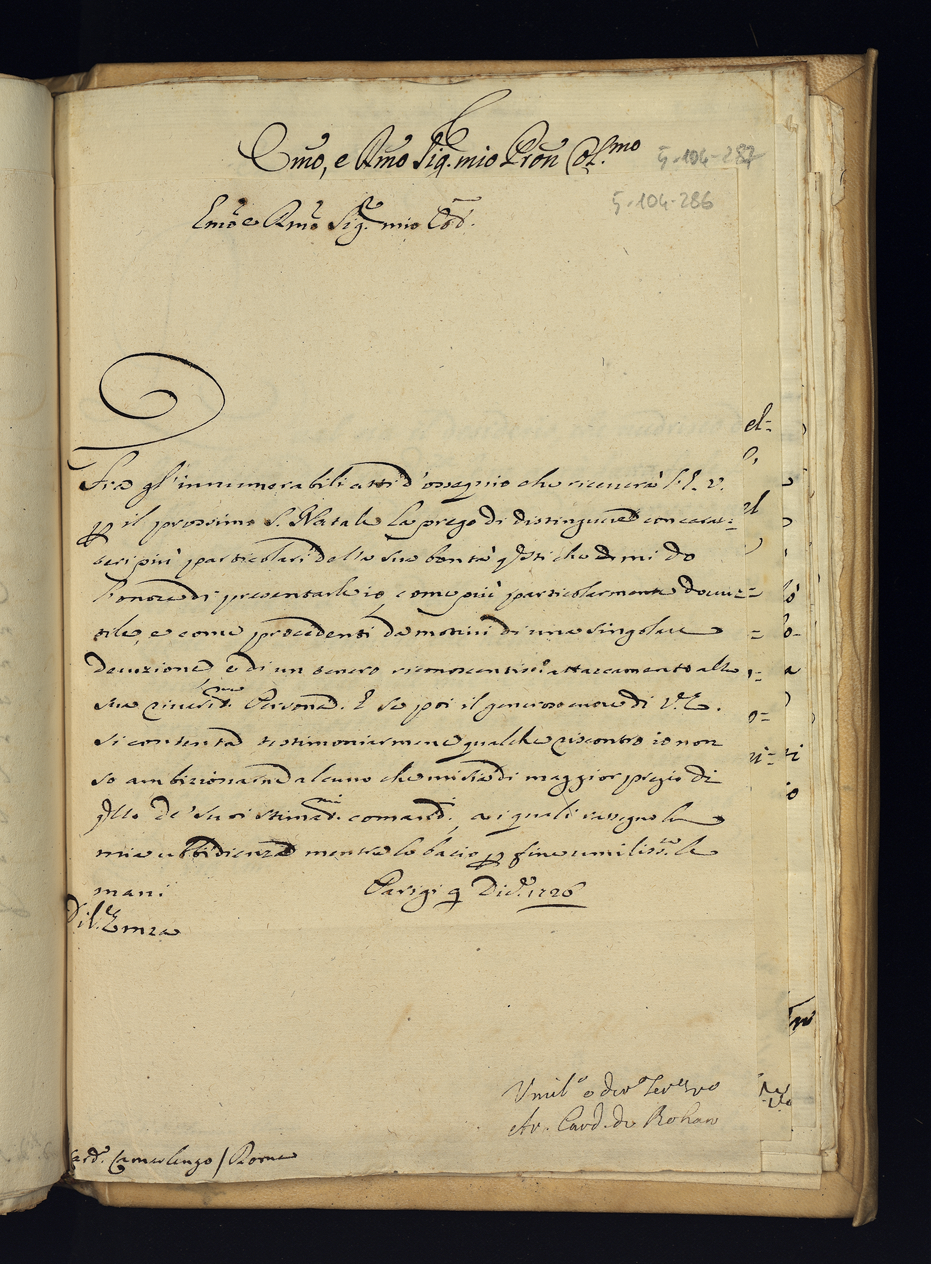 Emo, e Rmo Sig. mio Pron Col.mo
5-104-287
5-104-286
Emo e Rmo Sig. mio
Fra gl'innumerabili atti d'ossequio che riceverà l'E. V.
il prossimo S. Natale la prego di distinguere con carat=
teri più particolari della sua bontà che mi do
l'onore di presentarle io, come più particolarmente
e come procedenti da motivi di una singolare
devuzione e di un tenero attaccamento alla
sua Persona. E se poi il generoso cuore di V. E.
si contenta testimoniarmene qualche riscontro io non
so ambizionarne alcuno che mi sia di maggior pregio di
de' suoi comandi, a i quali rassegno la
mia ubbidienza mentre le bacio fine umiliss.te le
mani Parigi 9 Dic.e 1726
Di V. Emza
Umil.o e dev.o
Card. de Rohan
Card. Camerlengo / Roma